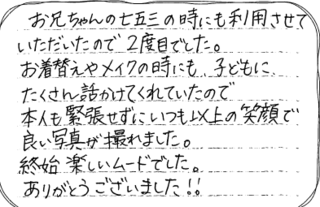 お兄ちゃんの七五三の時にも利用させて
いただいたので2度目でした。
お着替えやメイクの時にも、子どもに
たくさん話かけてくれていたので
本人も緊張せずにいつも以上の笑顔で
良い写真が撮れました。
終始楽しいムードでした。
ありがとうございました!!